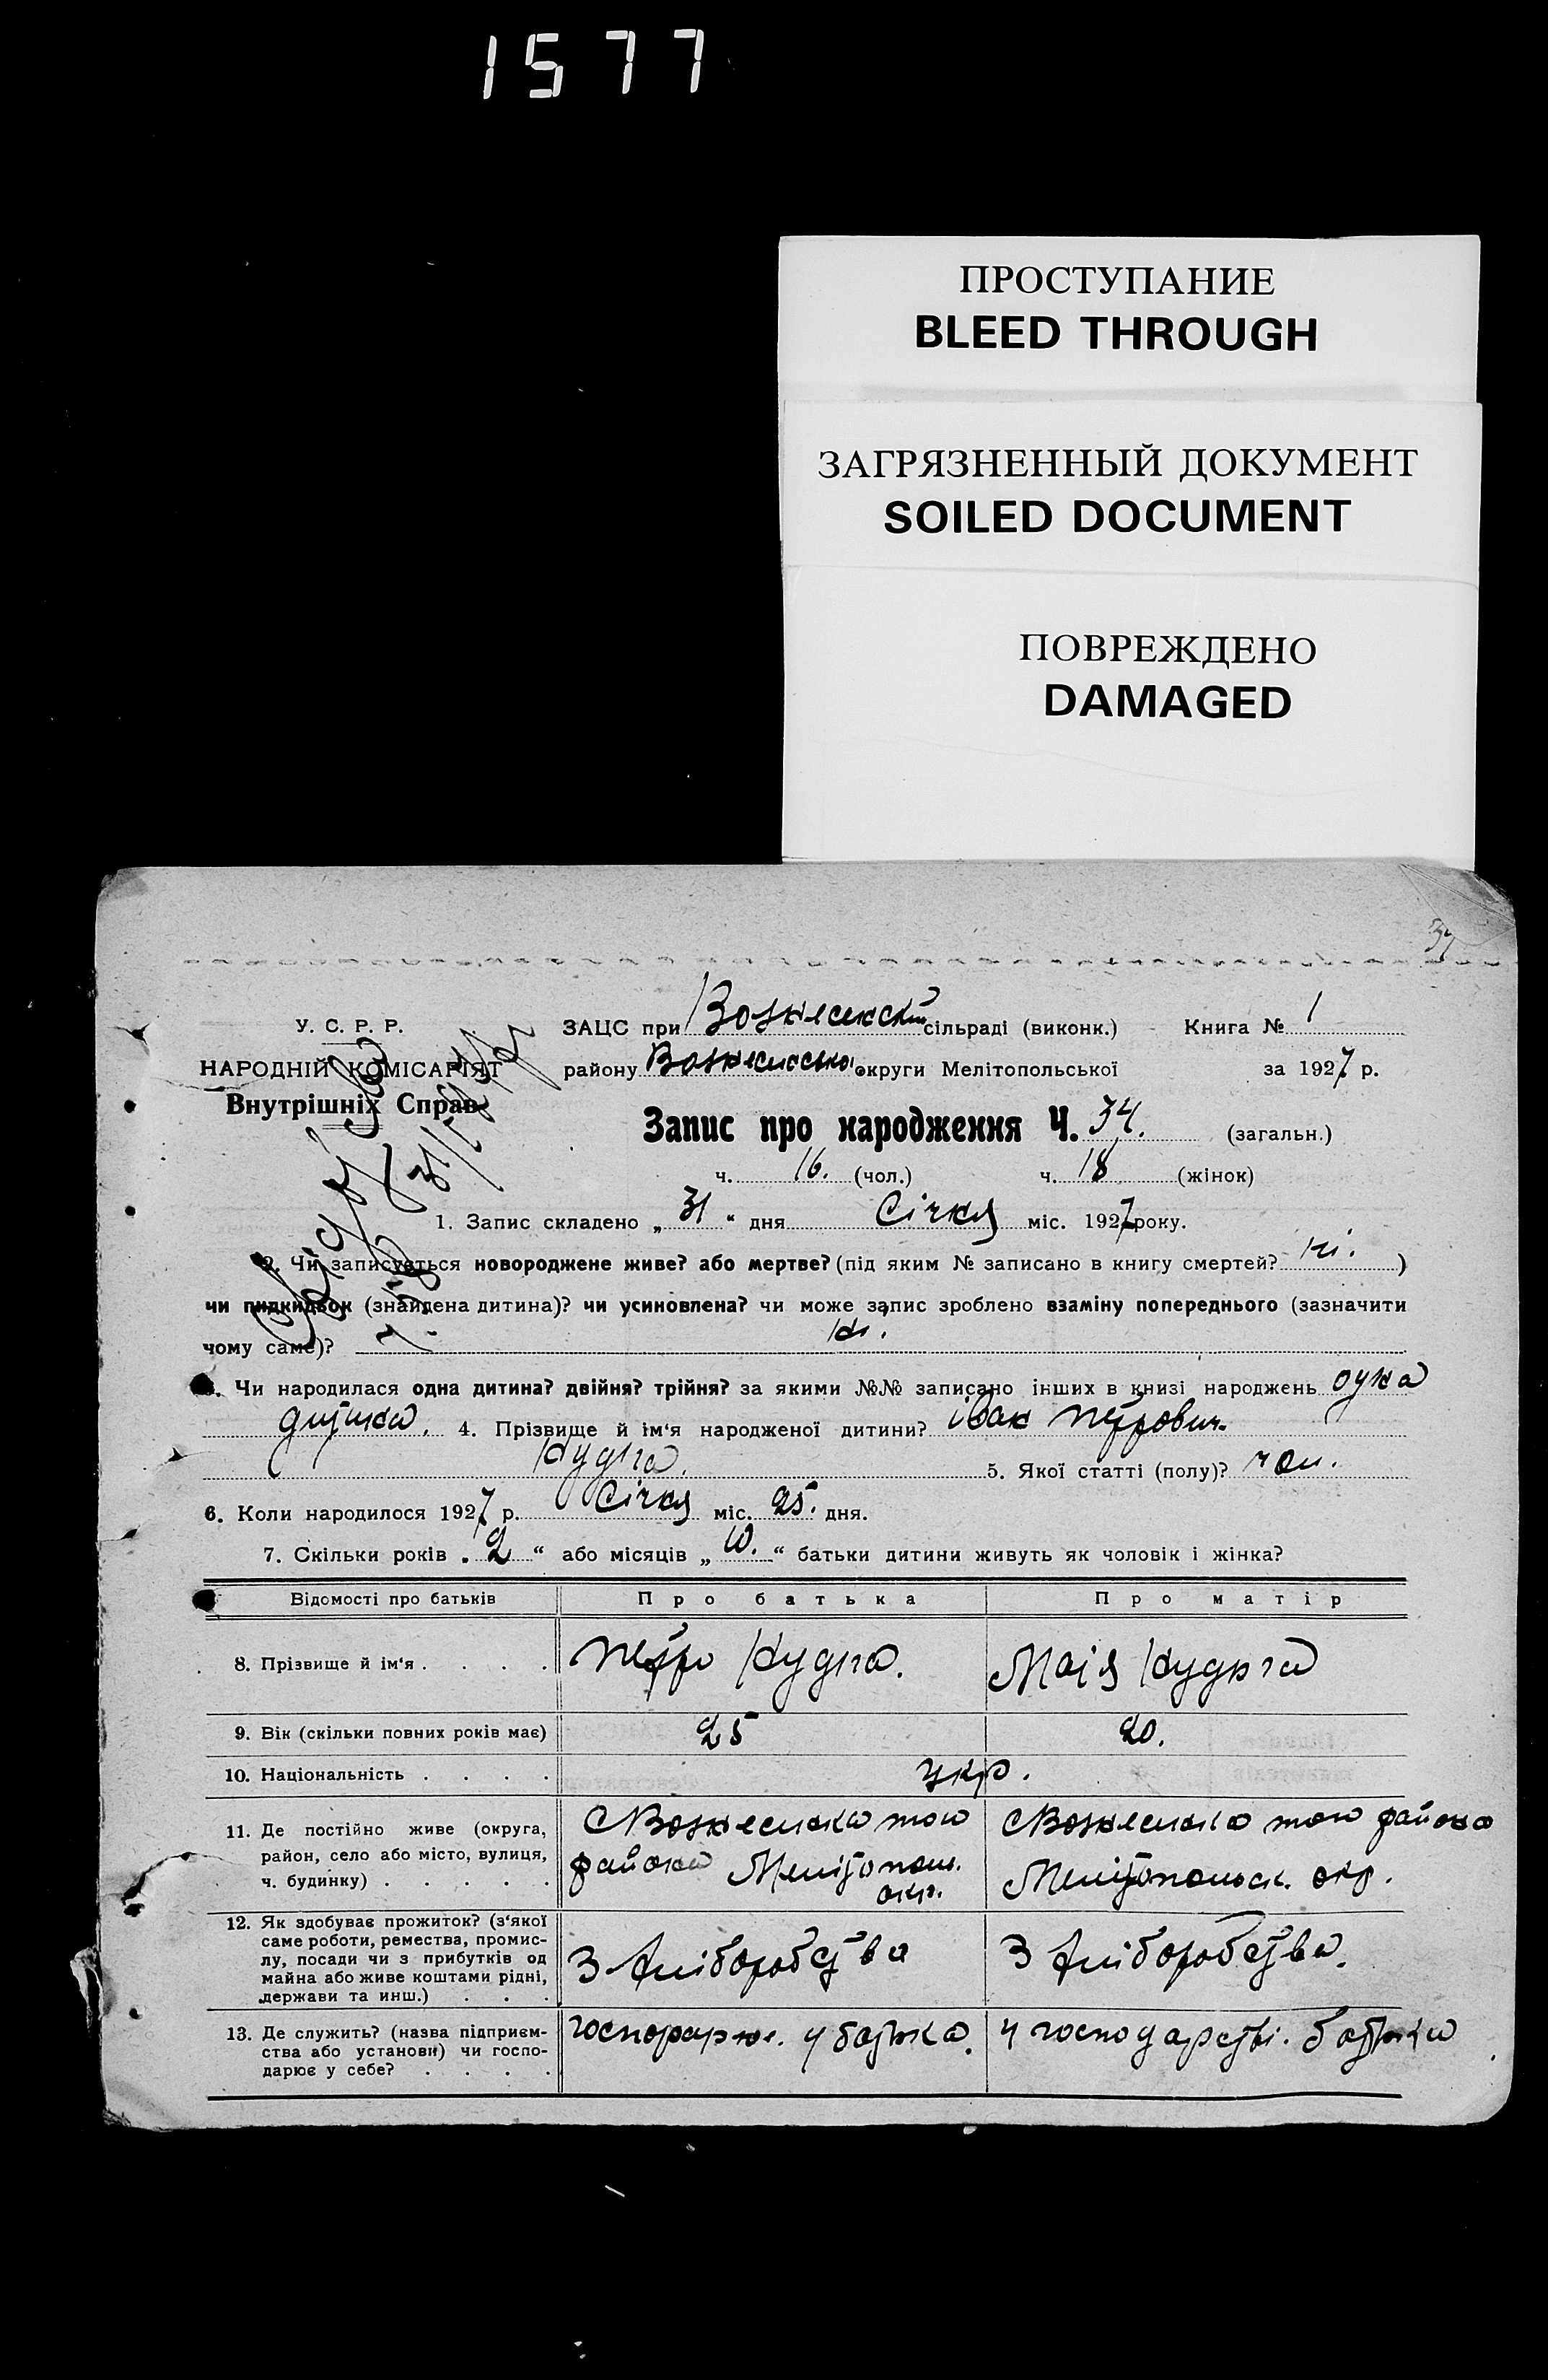 1577
ПРОСТУПАНИЕ
BLEED THROUGH
ЗАГРЯЗНЕННЫЙ ДОКУМЕНТ
SOILED DOCUMENT
ПОВРЕЖДЕНО
DAMAGED
У. С. Р. Р.
НАРОДНІЙ КОМІСАРІЯТ
Внутрішніх Справ
ЗАЦС при Вознесенскій сільраді (виконк.) Книга № 1
району округи Мелітопольської за 1927 р.
Запис про народження Ч. 34. (загальн.)
ч. 16. (чол.) ч. 18 (жінок)
1. Запис складено „ 31 “ дня Січня міс. 1927 року.
2. Чи записується новороджене живе? або мертве? (під яким № записано в книгу смертей? ні. )
чи пидкидьок (знайдена дитина)? чи усиновлена? чи може запис зроблено взаміну попереднього (зазначити
чому саме)? ні.
3. Чи народилася одна дитина? двійня? трійня? за якими №№ записано інших в книзі народжень одна
дитина. 4. Прізвище й ім‘я народженої дитини? іван Петрович
5. Якої статті (полу)? чол.
6. Коли народилося 1927 р. Січня міс. 25. дня.
7. Скільки років „ 2 “ або місяців „ 10. “ батьки дитини живуть як чоловік і жінка?
Відомості про батьків Про батька Про матір
8. Прізвище й ім‘я . . . . Петро
9. Вік (скільки повних років має) 25 20.
10. Національність . . . . укр.
11. Де постійно живе (округа,
район, село або місто, вулиця,
ч. будинку) . . . . .
С Вознесенка того
района Мелітопол.
окр.
С Вознесенка того района
Мелітопольск. окр.
12. Як здобуває прожиток? (з‘якої
саме роботи, ремества, промис-
лу, посади чи з прибутків од
майна або живе коштами рідні,
держави та инш.) . . .
З хліборобства
З хліборобства.
13. Де служить? (назва підприєм-
ства або установи) чи госпо-
дарює у себе? . . . .
у батька.
у господарстві. батька